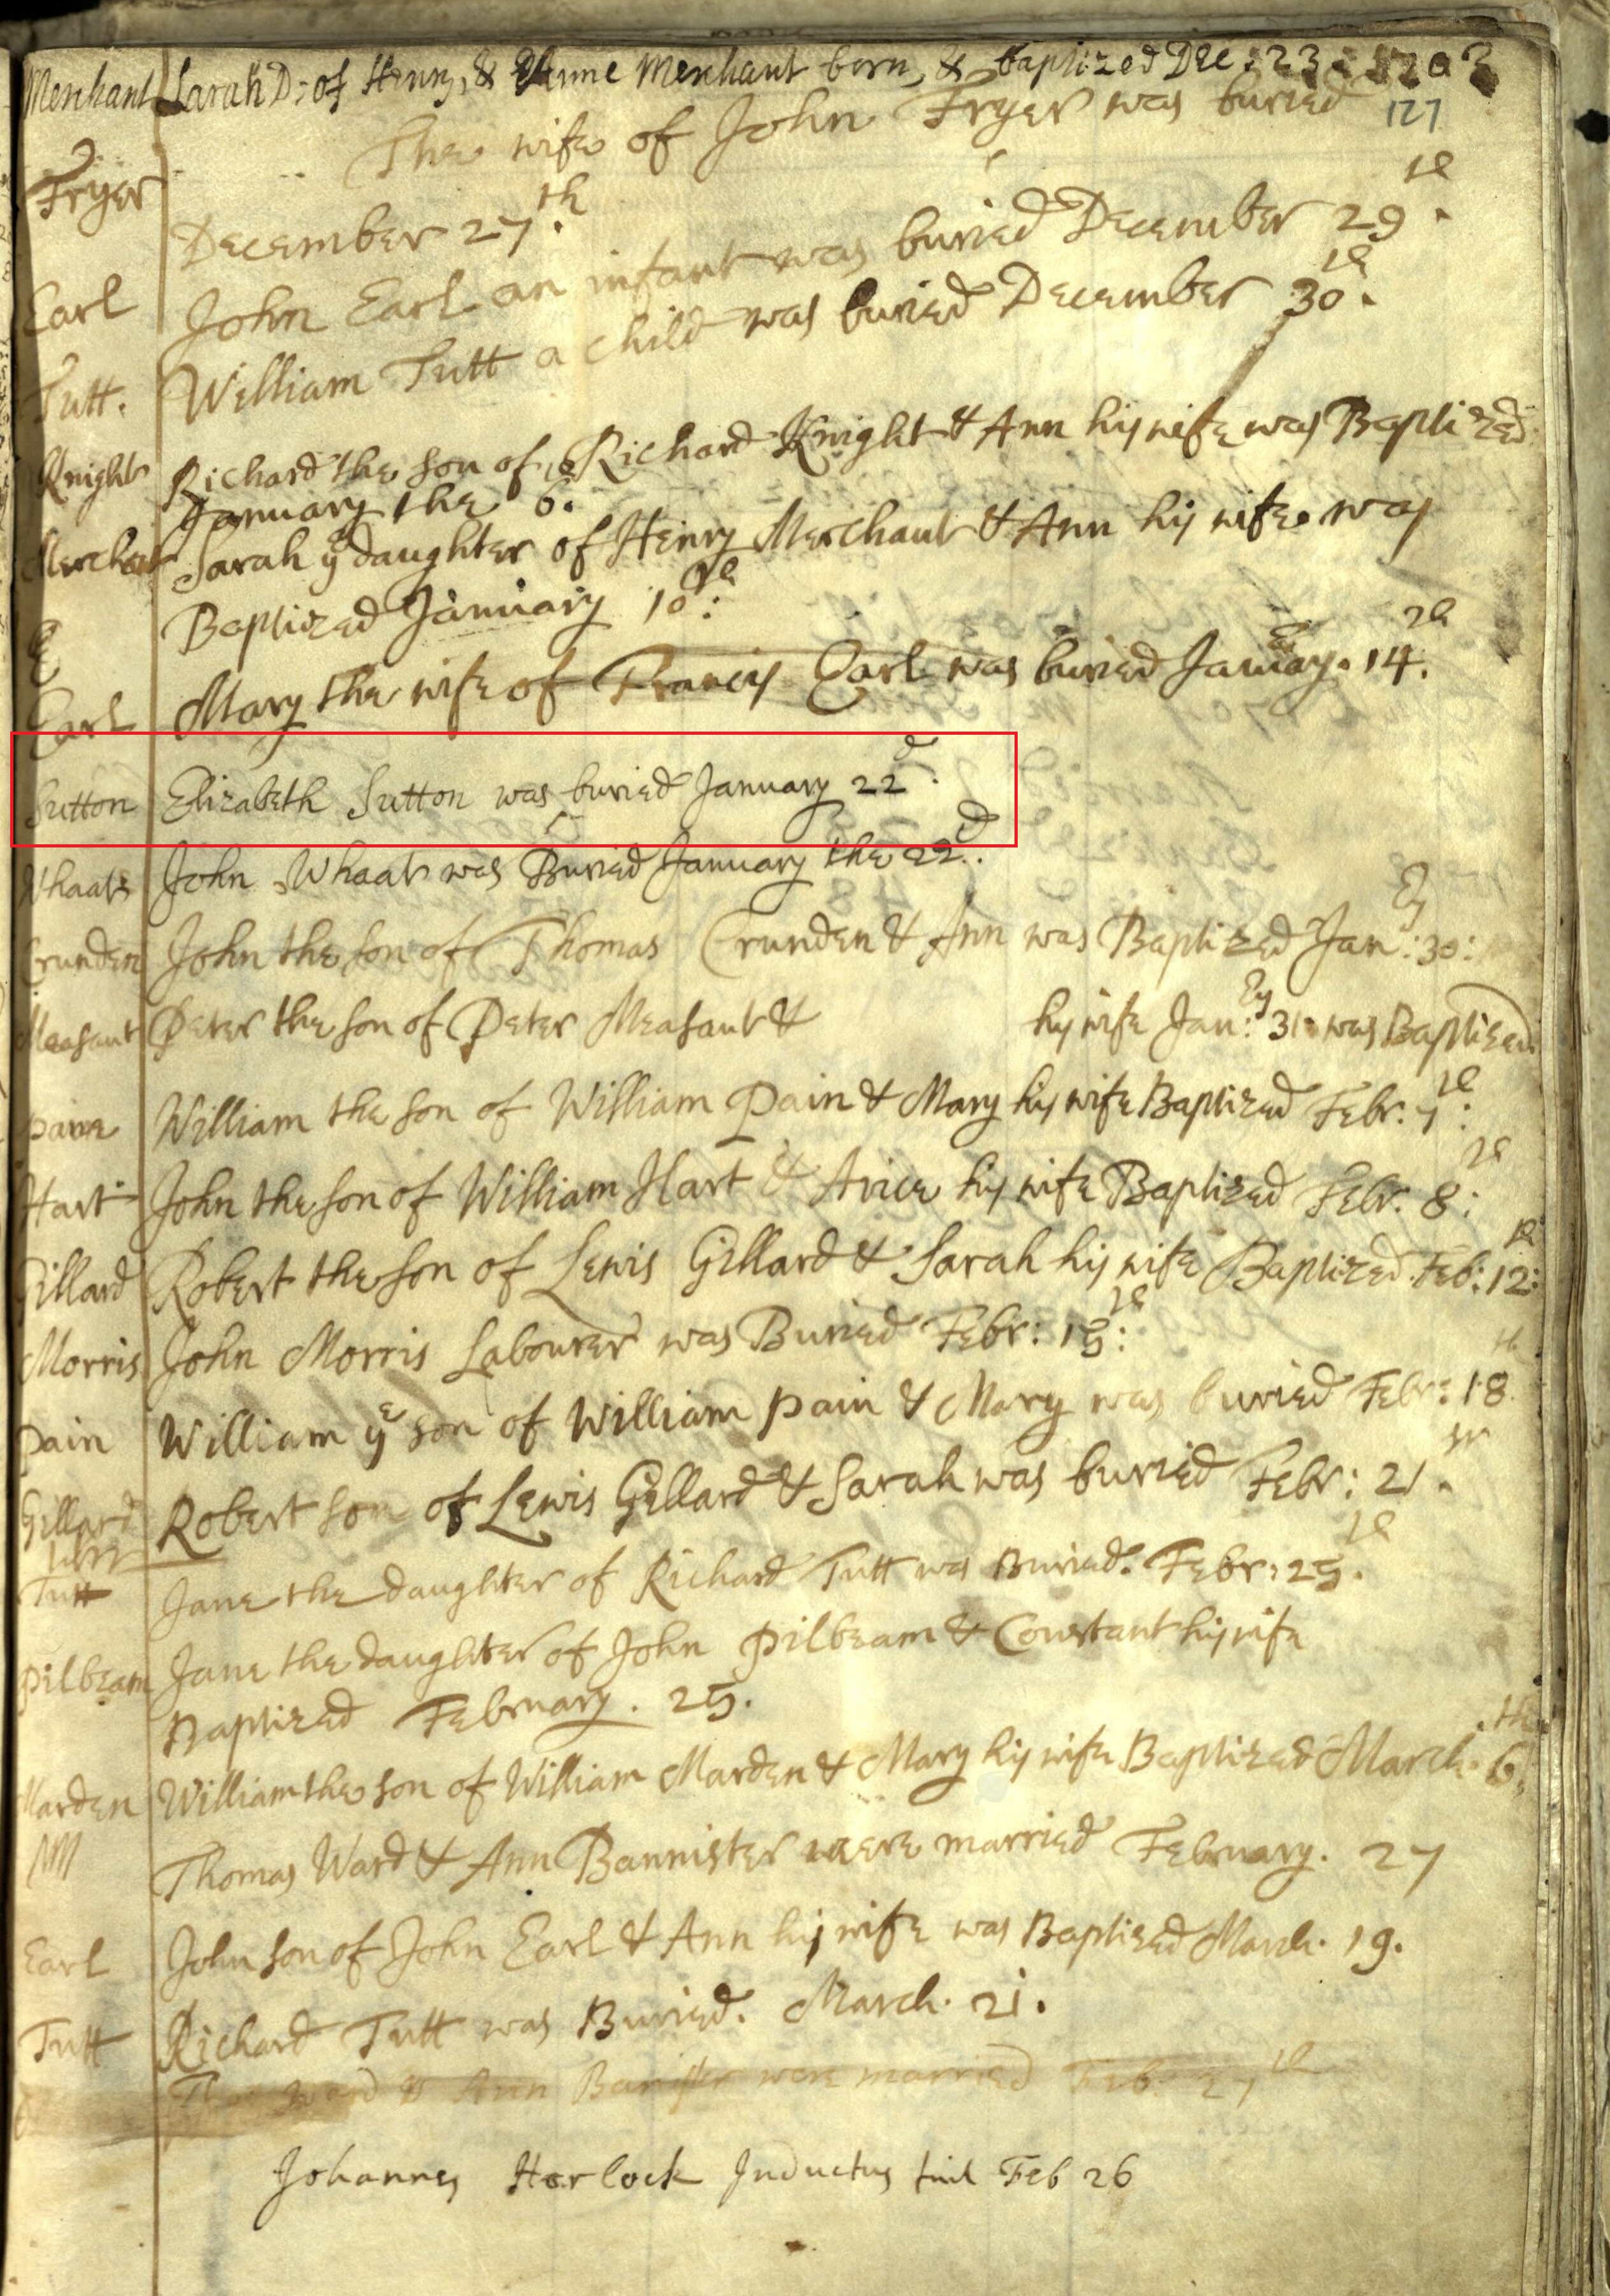 Merchant Sarah D: of Henry & Anne Merchant born, & baptized Dec: 23: 1702
127
The wife of John Fryer was buried
Fryer
December 27th.
Earl John Earl an infant was buried December 29th.
Tutt. William Tutt a child was buried December 30th.
Knight Richard the son of Richard Knight & Ann his wife was Baptized
January the 6.
Merchant Sarah ye daughter of Henry Merchant & Ann his wife was
Baptized January 10th:
E
Earl Mary the wife of Francis Earl was buried January. 14th.
Sutton Elizabeth Sutton was buried January 22d.
Whaat John Whaat was Buried January the 22d.
Crunden John the son of Thomas Crunden & Ann was Baptized Janry: 30:
Measant Peter the son of Peter Measant & his wife Janry: 31 was Baptized
Paine William the son of William Pain & Mary his wife Baptized Febr: 7th:
Hart John the son of William Hart & Avice his wife Baptized Febr. 8th:
Gillard Robert the son of Lewis Gillard & Sarah his wife Baptized. Feb: 12th:
Morris John Morris Labourer was Buried Febr: 15th:
Pain William ye son of William Pain & Mary was buried Febr: 18th
Gillard Robert son of Lewis Gellard & Sarah was buried Febr: 21st.
Tutt Jane the daughter of Richard Tutt was Buried. Febr: 25th.
Pilbeam Jane the daughter of John Pilbeam & Constant his wife
Baptized February. 25.
Marden William the son of William Marden & Mary his wife Baptized March. 6th.
Thomas Ward & Ann Bannister were married February. 27
Earl John son of John Earl & Ann his wife was Baptized March. 19.
Tutt Richard Tutt was Buried. March. 21.
Tho: Ward & Ann Banister were married Feb: 27th
Johannes Horlock Inductus fuit Feb 26